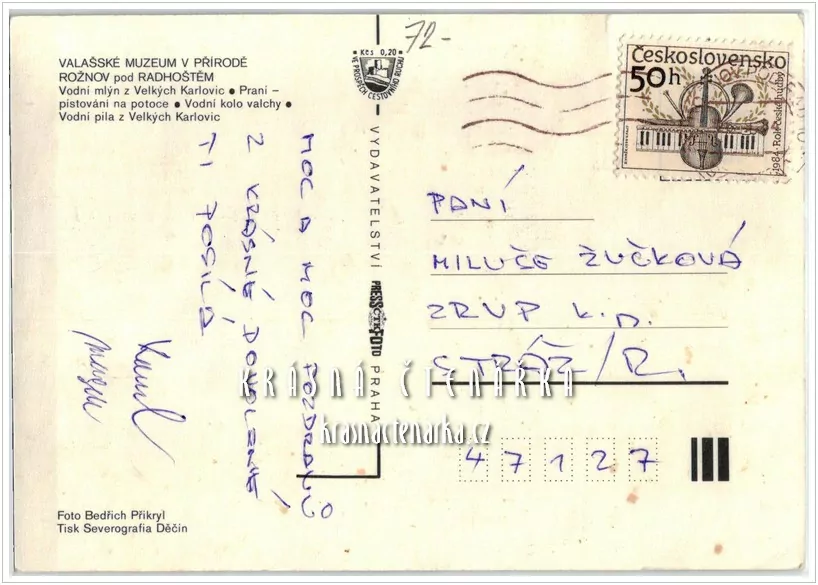 VALAŠSKÉ MUZEUM V PŘÍRODĚ
ROŽNOV pod RADHOŠTĚM
Vodní mlýn z Velkých Karlovic ● Praní –
pístování na potoce ● Vodní kolo valchy ●
Vodní pila z Velkých Karlovic
MOC A MOC POZDRAVŮ
Z KRÁSNÉ DOVOLENÉ
TI POSÍLÁ
Kamil
Foto Bedřich Přikryl
Tisk Severografia Děčín
72-
Kčs 0,20
VE PROSPĚCH CESTOVNÍHO RUCHU
VYDAVATELSTVÍ PRESSFOTO PRAHA
ČTK
Československo
50h
1984 Role české hudby
PANÍ
MILUŠE ŽUČKOVÁ
ZRUP k.p.
STRÁŽ/R.
47127
KRÁSNÁ ČTENÁŘKA
krasnactenarka.cz